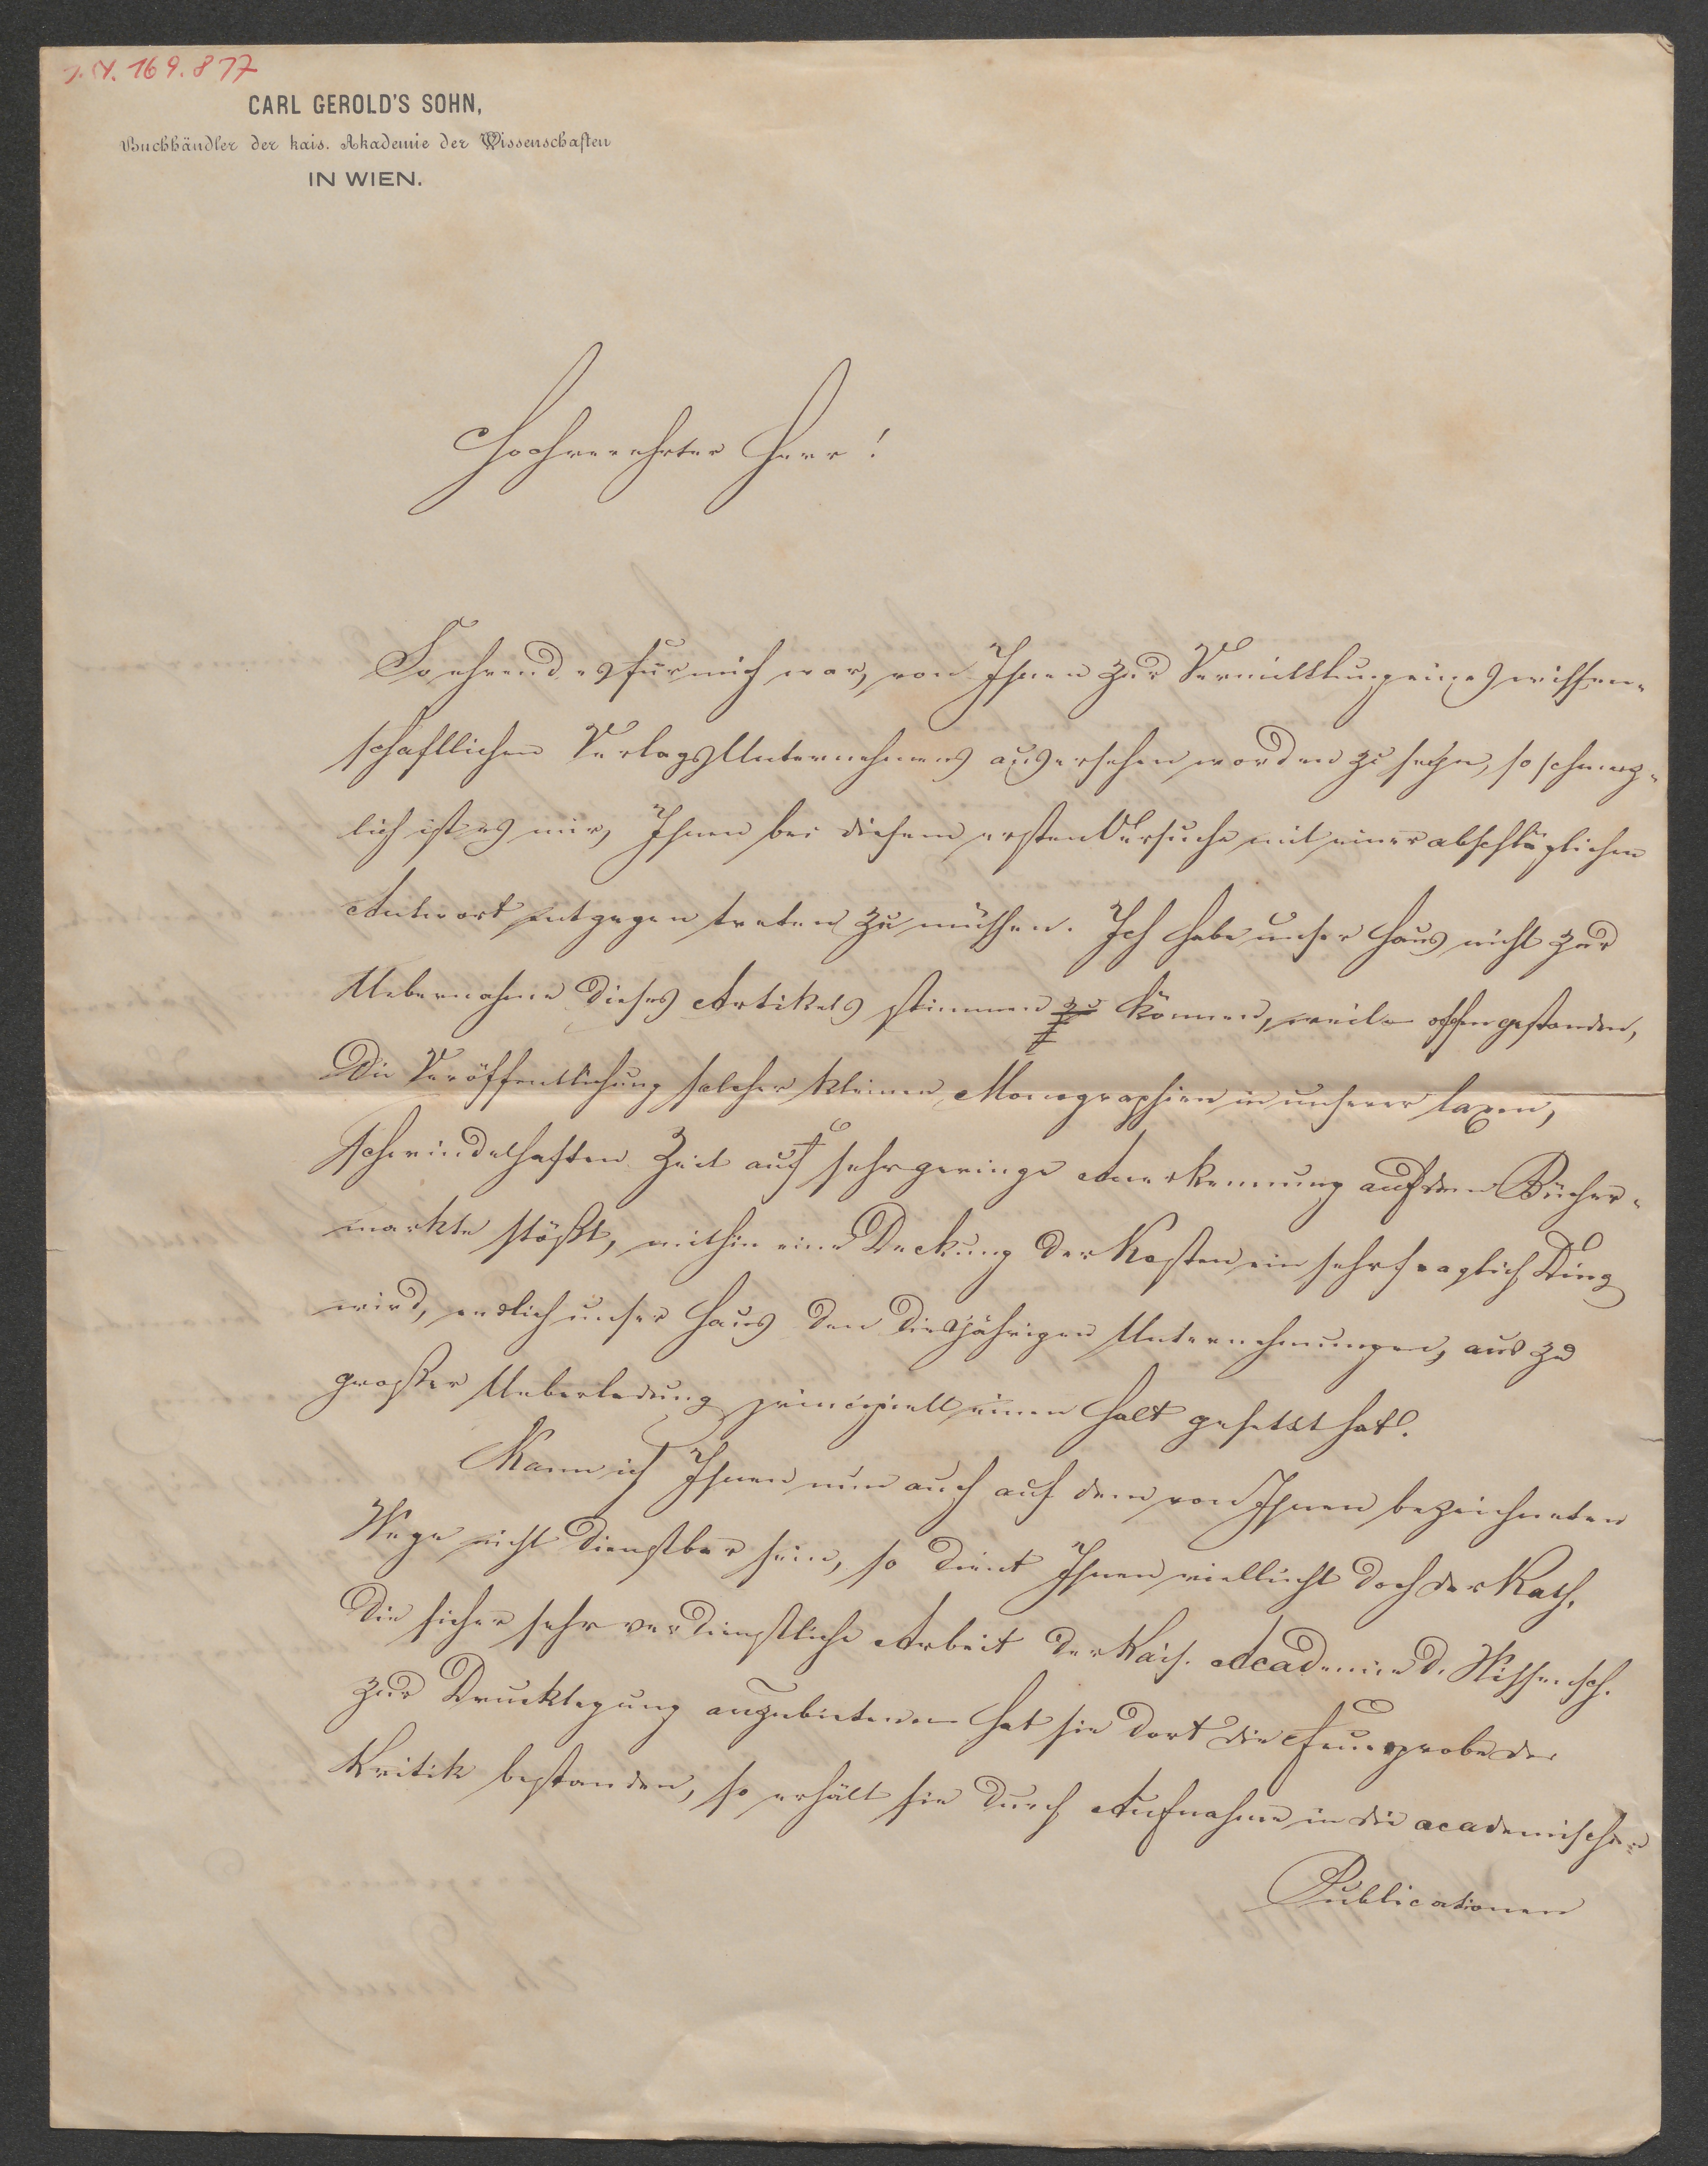 J.N. 169.877
CARL GEROLD'S SOHN,
Buchhändler der kais. Akademie der Wissenschaften
IN WIEN.
Hochverehrter Herr!
So ehrend es für mich war, von Ihnen zur Vermittlung eines wissen-
schaftlichen Verlags Unternehmens ausersehen worden zu sehn, so schmerz-
lich ist es mir, Ihnen bei diesem ersten Versuche mit einer abschläglichen
Antwort entgegen treten zu müssen. Ich habe unser Haus nicht zur
Uebernahme dieses Artikels stimmen zu können, weil – offen gestanden,
die Veröffentlichung solcher kleinen Monographien in unserer laxen,
schwindelhaften Zeit auf sehr geringe Anerkennung auf dem Bücher-
markte stößt, mithin eine Deckung der Kosten ein sehr fraglich Ding
wird, endlich unser Haus den diesjährigen Unternehmungen, aus zu
großer Ueberladung principiell einen Halt gesetzt hat.
Kann ich Ihnen nun auch auf dem von Ihnen bezeichneten
Wege nicht dienstbar sein, so dient Ihnen vielleicht doch der Rath,
die sicher sehr verdienstliche Arbeit der Kais. Academie d. Wissensch.
zur Drucklegung anzubieten – hat sie dort die Feuerprobe der
Kritik bestanden, so erhält sie durch Aufnahme in die academischen
Publicationen